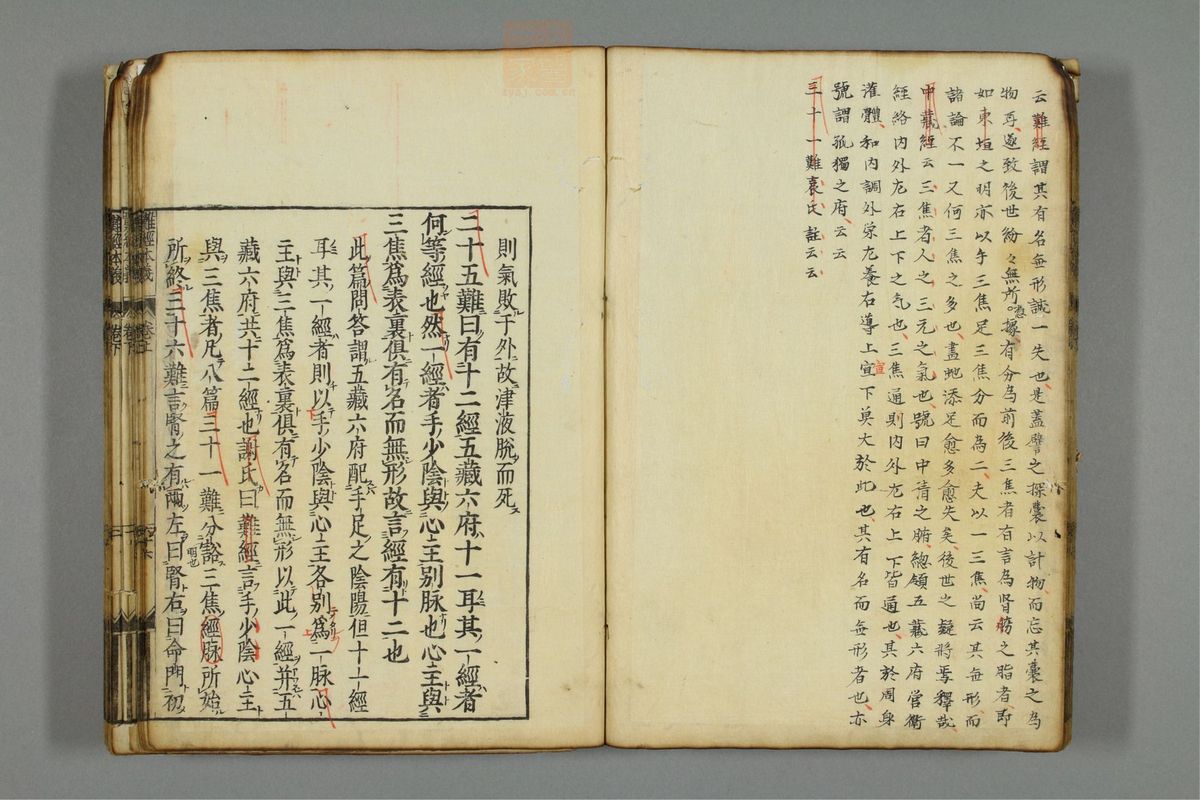 云難經謂其有名無形誠一失也是蓋譬之探囊以計物而忘其囊之為
物再遂致後世紛々無所憑據有分為前後三焦者有言為腎膀之脂者即
如東垣之明亦以手三焦足三焦分而為二夫以一三焦尚云其無形而
諸論不一又何三焦之多也畫蛇添足愈多愈失矣後世之疑將焉釋哉
中藏經云三焦者人之三元之氣也號曰中清之腑總領五藏六府営衛
経絡内外左右上下之气也三焦通則内外左右上下皆通也其於周身
灌體和内調外栄左養右導上宣下莫大於此也其有名而無形者也亦
號謂孤獨之府云云
三十一難袁氏註云云
則氣敗于外故津液脫而死
二十五難曰有十二經五藏六府十一耳其一經者
何等經也然一經者手少陰與心主別脉也心主與
三焦爲表裏俱有名而無形故言經有十二也
此篇問答謂五藏六府配手足之陰陽但十一經
耳其一經者則以手少陰與心主各別爲一脉心
主與三焦爲表裏俱有名而無形以此一經并五
藏六府共十二經也謝氏曰難經言手少陰心主
與三焦者凡八篇三十一難分豁三焦經脉所始
所終三十六難言腎之有兩左曰腎右曰命門初
難經本義
卷上
卷下